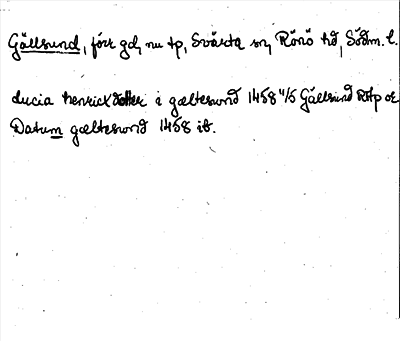 Gällsund, förr gd, nu tp, Svärta sn, Rönö hd, Södm. l.
Lucia henrickdotter i gæltesund 1458 4/5 Gällsund RAp or
Datum gæltesund 1458 ib.